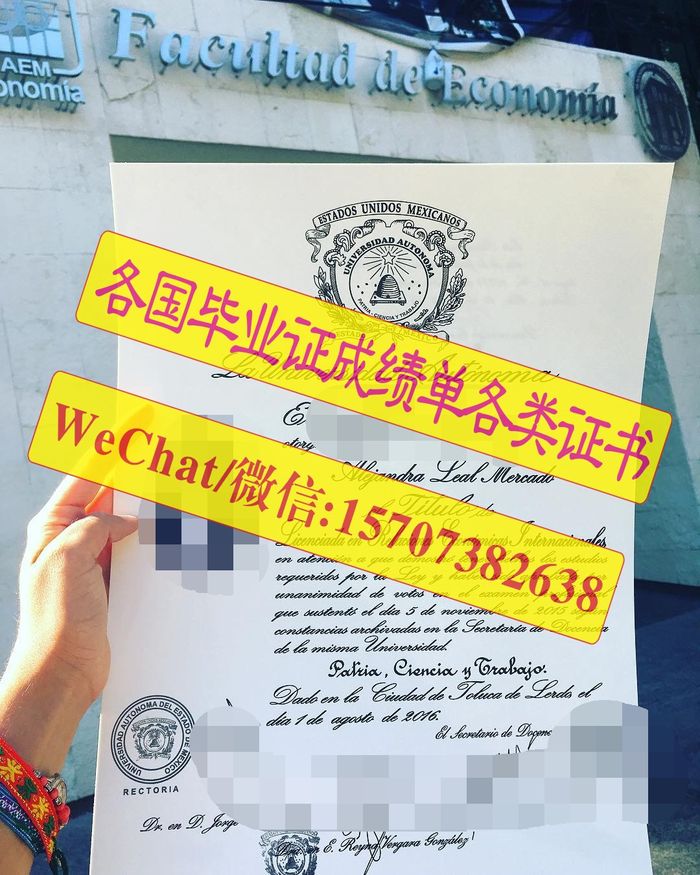 AEM
onomía
Facultad de Economía
ESTADOS UNIDOS MEXICANOS
UNIVERSIDAD AUTONOMA
PATRIA, CIENCIA Y TRABAJO
各国毕业证成绩单各类证书
La Universidad Autónoma
Alejandra Leal Mercado
Título de
WeChat/微信:15707382638
Licenciada en Internacionales
en atención a que los estudios
requeridos por la Ley y
unanimidad de votos en el examen
que sustentó el día 5 de noviembre de 2015 según
constancias archivadas en la Secretaría de Docencia
de la misma Universidad.
Patria, Ciencia y Trabajo.
Dado en la Ciudad de Toluca de Lerdo el
día 1 de agosto de 2016.
El Secretario de Docenc
UNIVERSIDAD AUTONOMA DEL ESTADO DE MEXICO
RECTORIA
Dr. en D. Jorge
en E. Reyna Vergara González